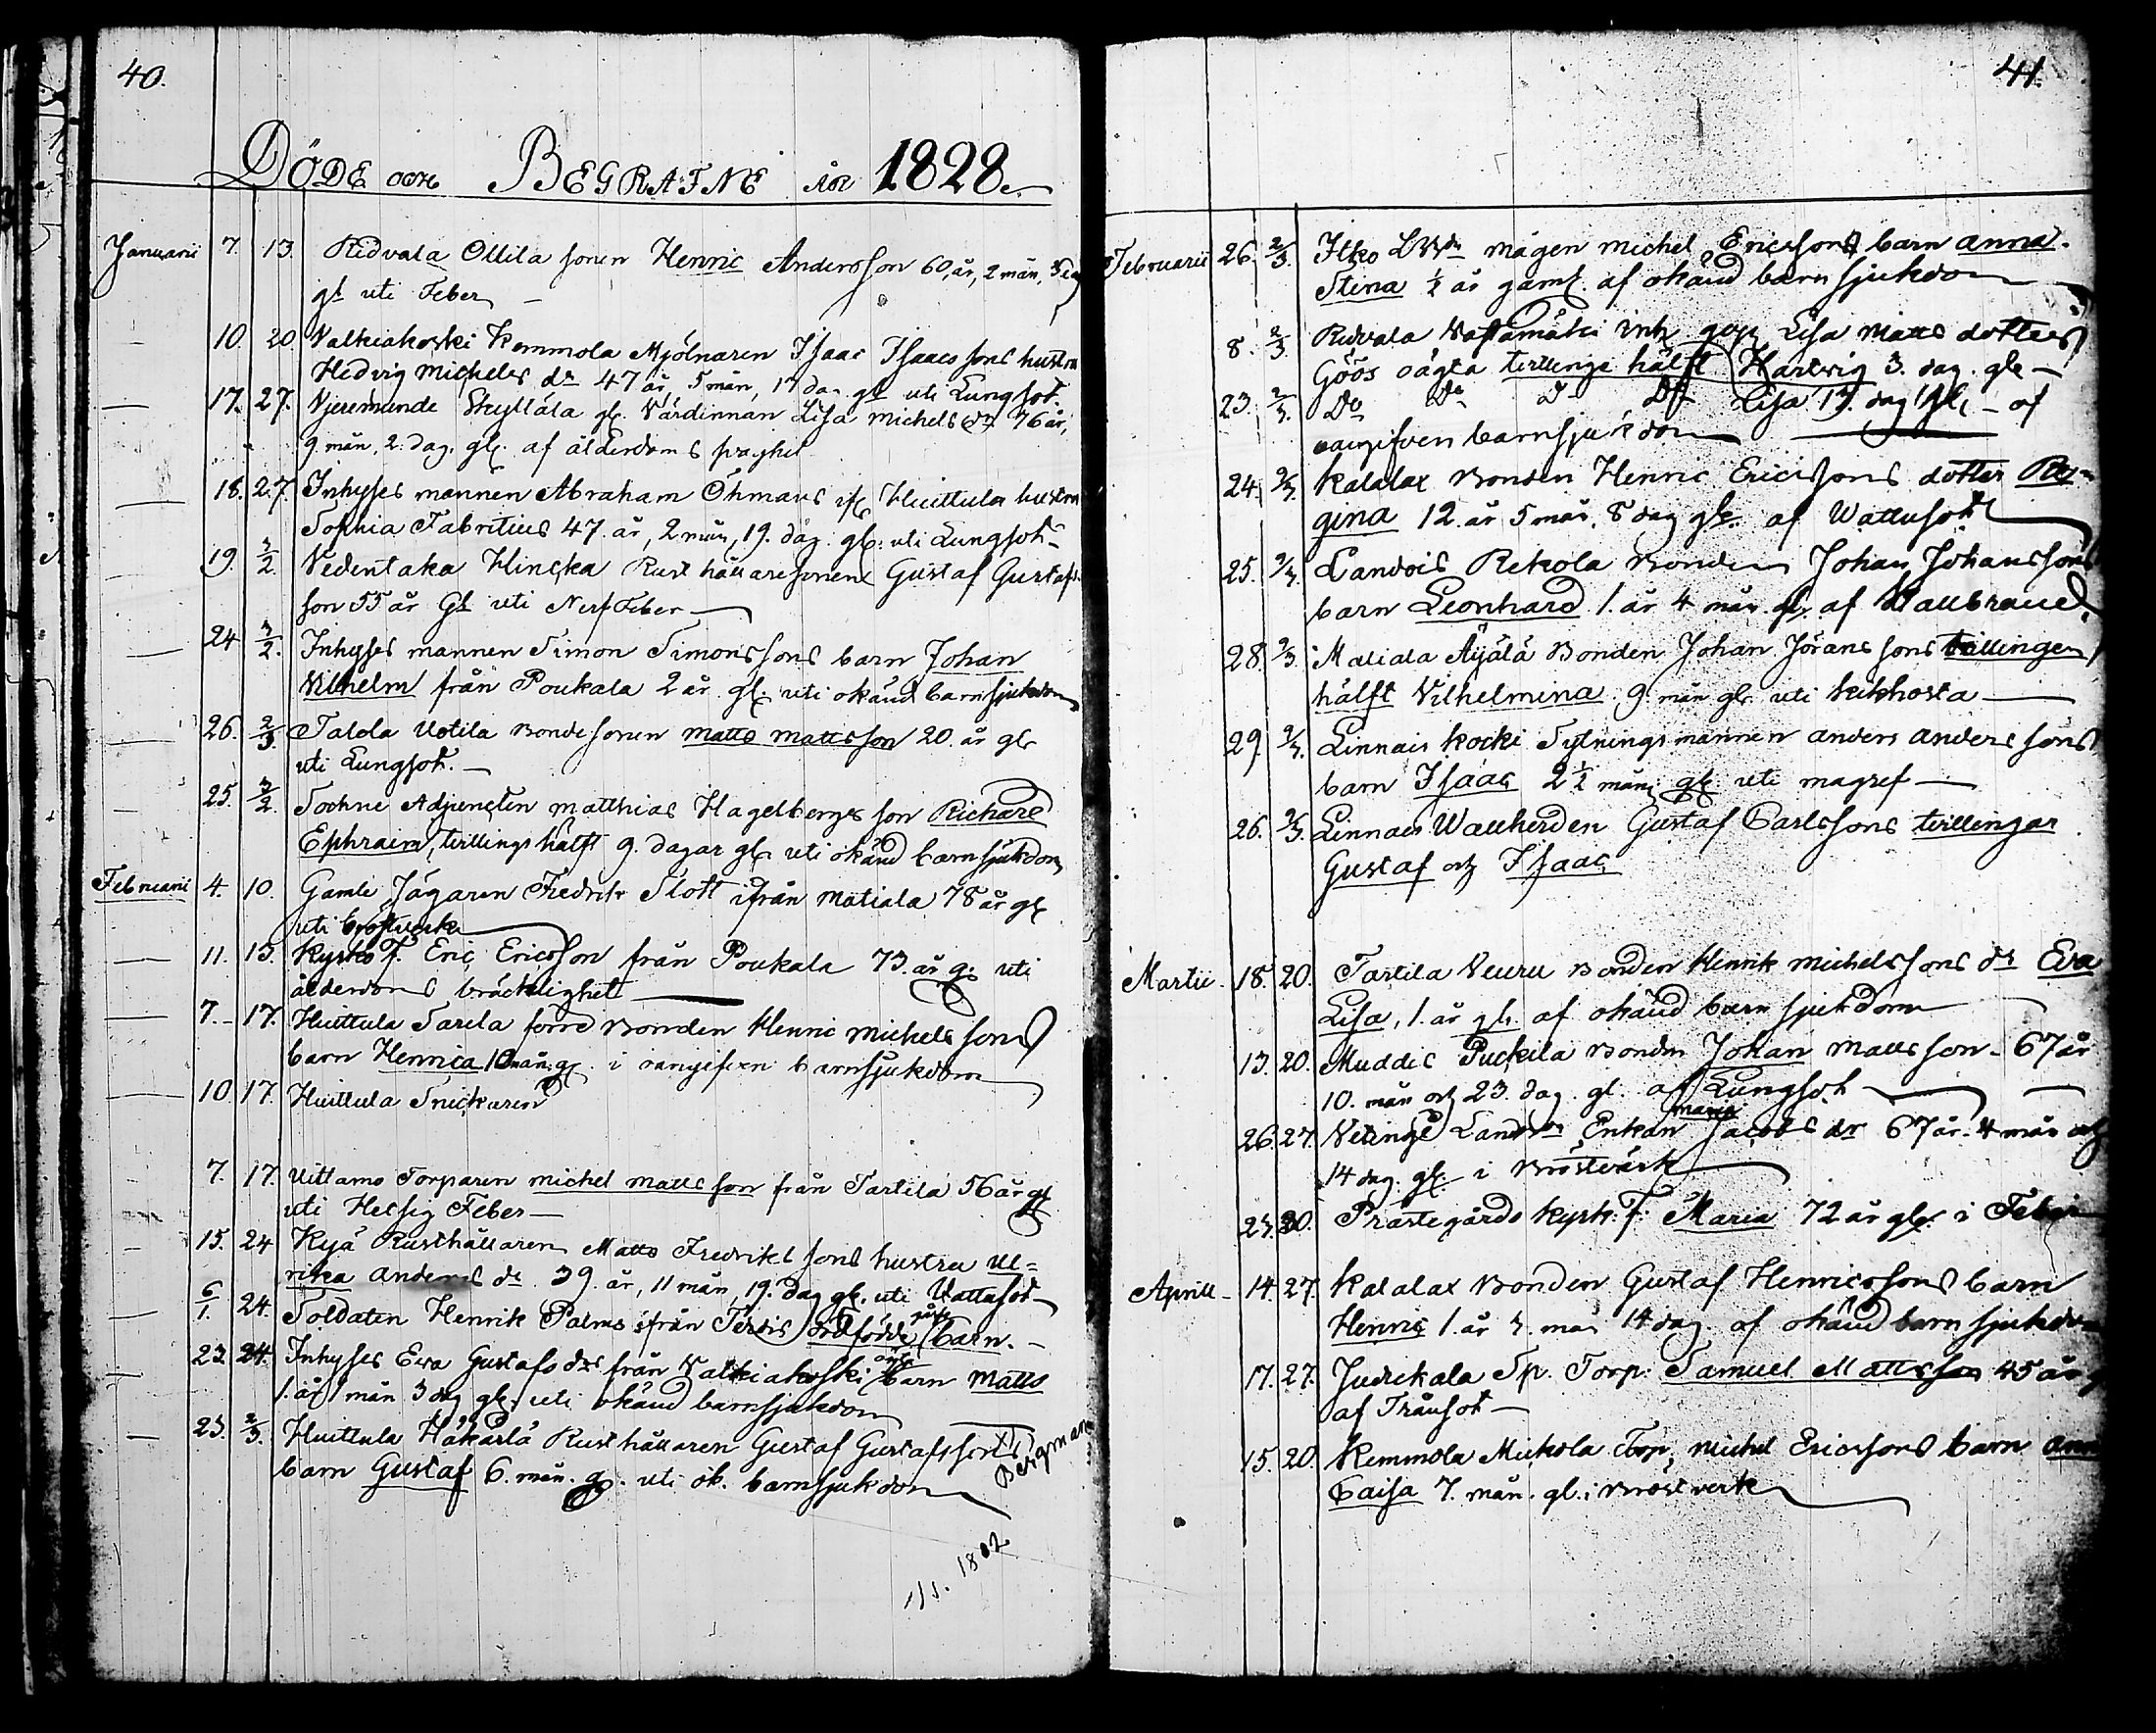 40.
DÖDE och BEGRAFNE år 1828.
Januarii 7 13 Ridvala Ollila sonen Henric Andersson 60 år, 2 mån, 3 dag
gl uti Feber
10. 20 Valkiakoski Kemmola Mjölnaren Isaac Isaacssons hustru
Hedvig Michels dr 47 år, 5 mån, 17 dag gl uti Lungsot.
17. 27. Vjeremunde Skyllälä gl. Värdinnan Lisa Michels dr 76 år,
9 mån, 2 dag. gl. af ålderdoms svaghet
18. 27. Inhyses mannen Abraham Öhmans ifr Huittula hustru
Sophia Fabritius 47. år, 2 mån, 19. dag. gl. uti Lungsot
19. 3/2. Vedentaka Hincka Rusthållaresonen Gustaf Gustafs
son 55 år Gl uti Nerffeber
24 3/2. Inhyses mannen Simon Simonssons barn Johan
Vilhelm från Poukala 2 år gl. uti okänd barnsjukdom
26. 2/3. Talola Uotila Bondesonen Matts Mattsson 20. år gl
uti Lungsot.
25. 3/2. Sockne Adjuncten Matthias Hagelbergs son Richard
Ephraim, tvillings hälft 9. dagar gl. uti okänd barnsjukdom
Februarii 4. 10. Gamle Jägaren Fredrik Slott ifrån Matiala 78 år gl
uti bröstverk
11. 13. Kyrko F. Eric Ericsson från Poukala 73. år g. uti
ålderdoms bräcklighet
7. 17. Huittula Sarela förre Bonden Henric Michelssons
barn Henrica 10 mån. g. i oangifven barnsjukdom
10 17. Huittula Snickaren
7. 17. Uittamo Torparen Michel Mattsson från Tartila 56 år gl
uti Hetsig Feber
15. 24 Kyä Rusthållaren Matts Fredrikssons hustru Ul=
rika Anders dr 39. år, 11 mån, 19. dag gl. uti Vattusot
6/1. 24. Soldaten Henrik Palms ifrån Tervis dödfödde barn.
23. 24. Inhyses Eva Gustafs drs från Valkiakoski oägta barn Matts
1. år 1 mån 3 dag gl. uti okänd barnsjukdom
23. 2/3. Huittula Häkärlä Rusthållaren Gustaf Gustafssons
barn Gustaf 6. mån. g. uti ok. barnsjukdom
Bergman
1/5. 1802
41.
Februarii 26. 2/3. Itko mågen Michel Ericssons barn Anna
Stina ½ år gaml. af okänd barnsjukdom
8. 2/3 Ridvala inh Lisa Matts dotters
Göös oägta tvillinge hälft Hartvig 3. dag. gl
23. 2/3. Do Do D Do Lisa 13. dag gl. af
oangifven barnsjukdom
24. 2/3. Kalalax Bonden Henric Ericssons dotter Re=
gina 12. år 5 mån. 8 dag gl. af Wattusot
25. 2/3. Landois Rekola Bonden Johan Johanssons
barn Leonhard 1. år 4 mån. gl. af Kallbrand.
28. 2/3. Matiala Äyälä Bonden Johan Jöranssons tvillingen
hälft Vilhelmina 9. mån gl. uti kikhosta
29. 2/3. Linnais Kocki Sytningsmannen Anders Anderssons
barn Isaac 2½ mån, gl uti magref
26. 2/3. Linnais Wallherden Gustaf Carlssons tvillingar
Gustaf och Isaac
Martii 18. 20. Tartila Neuru Bonden Henrik Michelssons dr Eva
Lisa, 1. år gl. af okänd barnsjukdom
13. 20. Muddis Puckila Bonden Johan Mattsson 67 år
10. mån och 23. dag. gl. af Lungsot
26. 27. Vetinge Landb. Enkan Maria Jacobs dr 67 år. 4 mån och
14 dag. gl. i Bröstvärk
23. 30. Prästegårds Kyrk. F. Maria 72 år gl. i Feber
Aprill 14 27. Kalalax Bonden Gustaf Henricssons barn
Henric 1. år 3. mån 14 dag. af okänd barnsjukdom
17. 27. Judickala Sp. Torp. Samuel Mattsson 45 år g
af Trånsot
15. 20 Kemmola Mickola Torp. Michel Ericssons barn Ann
Caisa 7. mån. gl. i Bröstverk